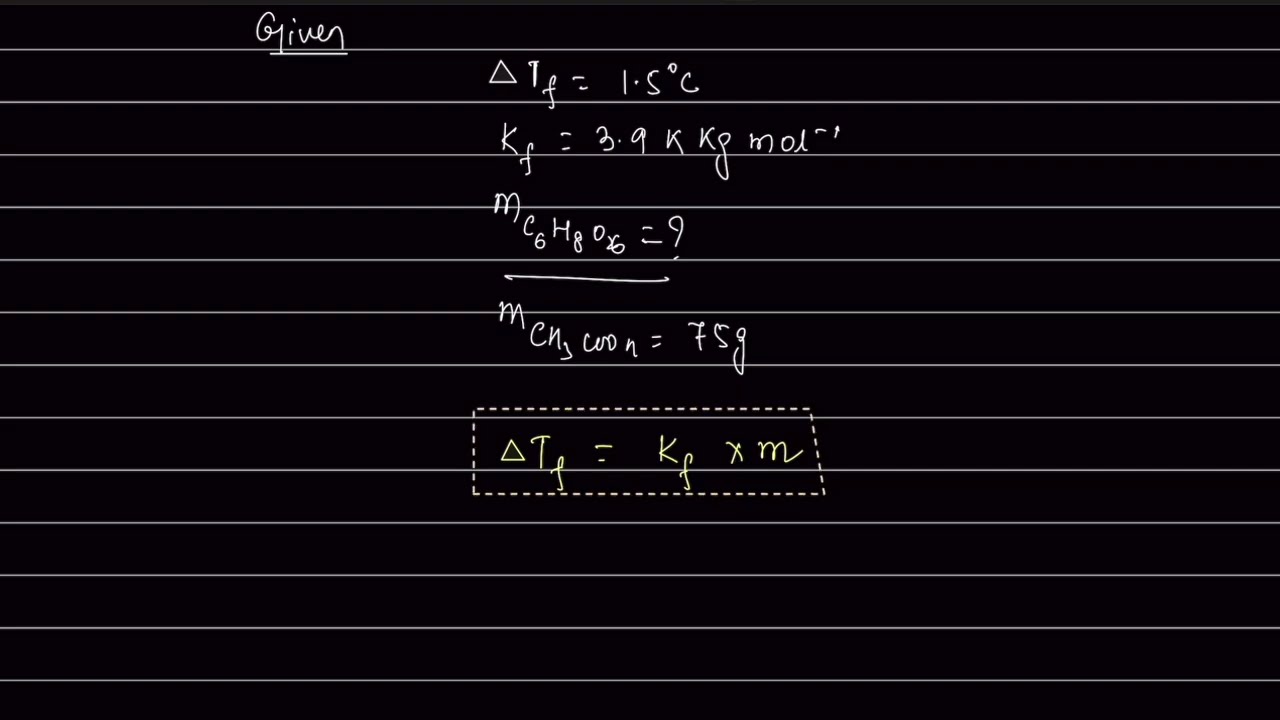 Given
△Tf = 1.5°C
Kf = 3.9 K Kg mol⁻¹
mC₆H₈O₆ = ?
mCH₃COOH = 75g
△Tf = Kf × m